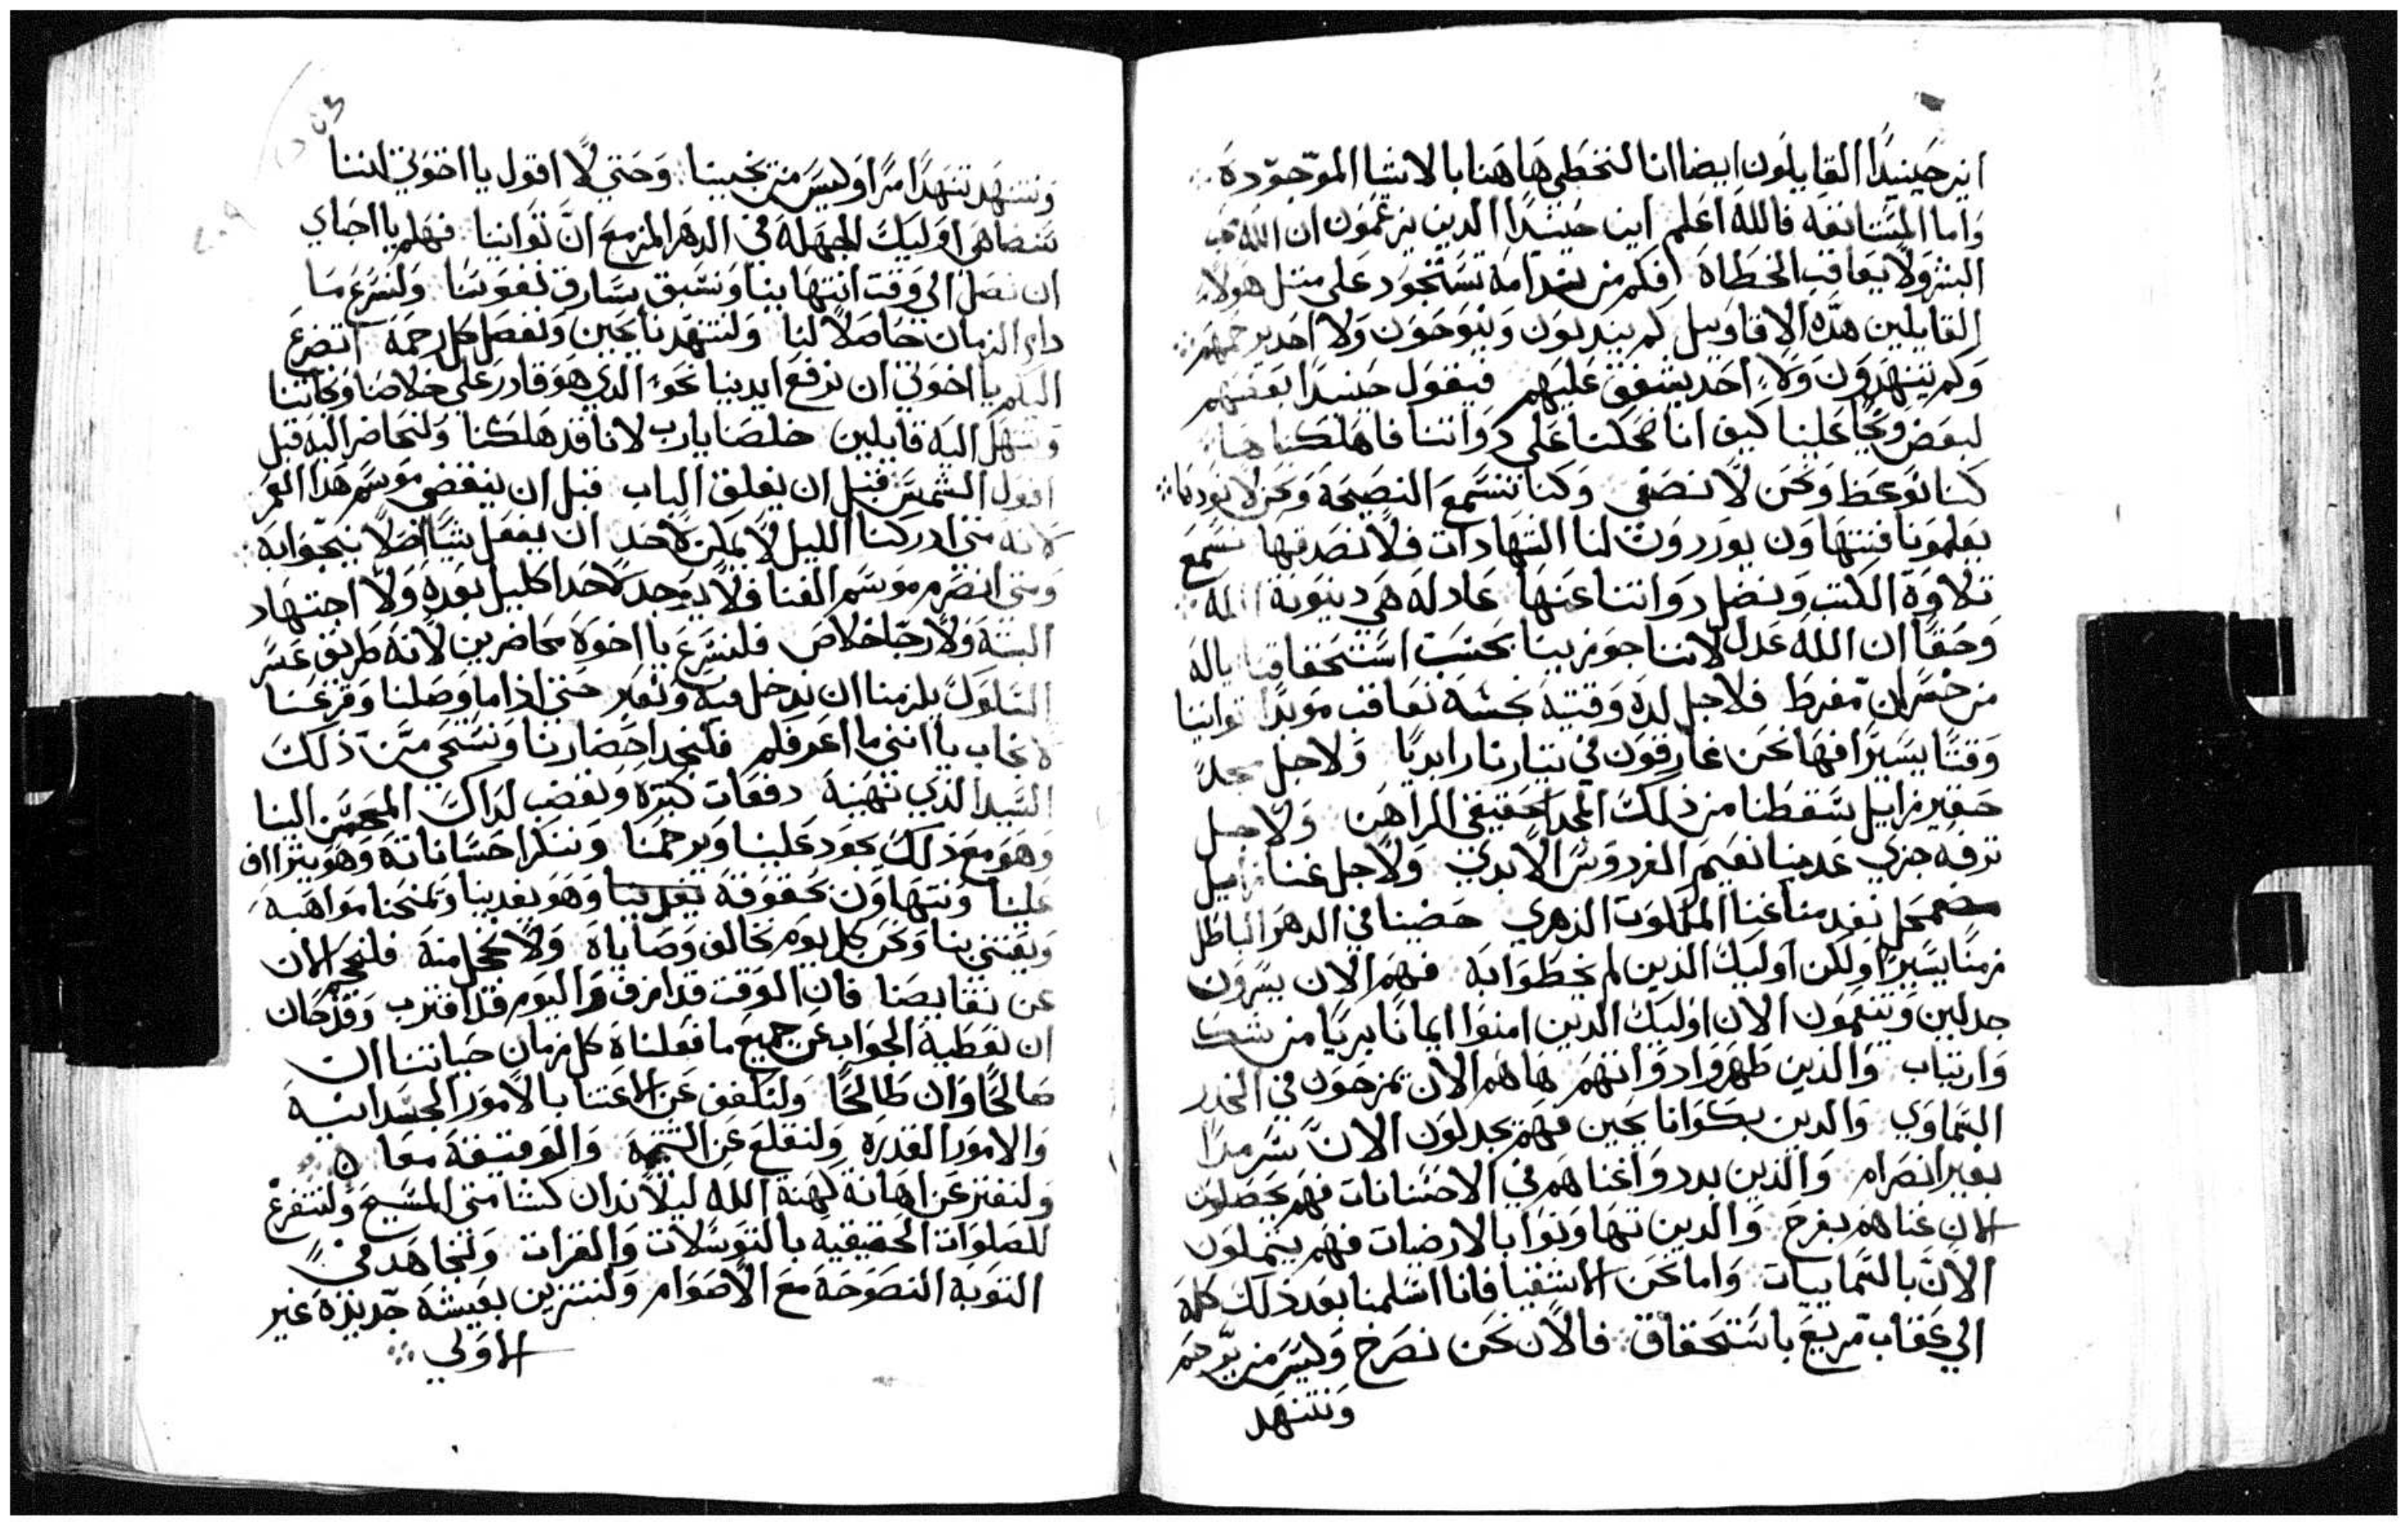 اين حينيدًا القايلون ايضا انا لنخطي هاهنا بالاشيا الموجوده
واما المستانفه فالله اعلم اين حينيدًا الدين يزعمون ان الله
البشر ولا يعاقب الخطاه افكم من ندامة تستحود على مثل هولا
القايلين هذه الاقاويل كم يندبون وينوحون ولا احد يرحمهم
وكم يتنهدون ولا احد يشفق عليهم فيقول حينيدًا بعضهم
لبعض ويحًا علينا كيف انا ضحكنا على دواتنا فاهلكناها
كنا نوعظ ونحن لا نصغي وكنا نستمع النصيحة ونحن لا
يعلمونا فنتهاون يوردون لنا الشهادات فلا نصدقها نسمع
تلاوة الكتب ونضل دواتنا عنها عادله هي دينونة الله
وحقًا ان الله عدل لاننا جوزينا بحسب استحقاقنا ياله
من خسران مفرط فلاجل لده وقتيه نجسه نعاقب موبدًا توانينا
وقتًا يسيرًا فها نحن غارقون في تيار نار ابديًا ولاجل مجد
حقير زايل سقطنا من ذلك المجد الحقيقي الراهن ولاجل
ترفه جزي عدمنا نعيم الفردوس الابدي ولاجل غنا زايل
مضمحل نعدمنا غنا الملكوت الدهري حضينا في الدهر الباطل
زمنًا يسيرًا ولكن اوليك الذين لم يحظوا به فهم الان يسرون
جدلين ويتنعمون الان اوليك الدين امنوا ايمانًا بريًا من شك
وارتياب والذين طهروا دواتهم ها هم الان يمرحون في الخدر
السماوي والدين بكوا نايحين فهم يجدلون الان سرمدًا
بغير انصرام والذين بددوا غناهم في الاحسانات فهم يحصلون
الان غناهم بفرح والدين تهاونوا بالارضيات فهم يتملون
الان بالسماييات واما نحن الاشقيا فانا اسلمنا بعد ذلك كله
الي عقاب مريع باستحقاق فالان نحن نصرخ وليس من يرحم
ونتنهد
ونتنهد تنهدًا مرًا وليس من يجيبنا وحتي لا اقول يا اخوتي اننا
نضاهي اوليك الجهله في الدهر المزمع ان توانينا فهلم يا احباي
ان نصل الي وقت انتهاينا ونسبق سارق نفوسنا ولنسرع ما
دام الزمان حاصلًا لنا ولنتنهد نايحين ونفصل كل رحمة اتضرع
اليكم يا اخوتي ان نرفع ايدينا نحو الذي هو قادر علي خلاصنا ونجاتنا
ونبتهل اليه قايلين خلصنا يارب لانا قد هلكنا ولنحاضر اليه قبل
افول الشمس قبل ان يغلق الباب قبل ان ينقضي موسم هدا العمر
لانه متي ادركنا الليل لا يمكن لاحد ان يفعل شيًا اصلًا ينجوا به
ومتي انصرم موسم الفنا فلا يوجد لاحد اكليل بعده ولا اجتهاد
البتة ولا رجا خلاص فلنسرع يا اخوه محاضرين لانه طريق عسر
السلوك يلزمنا ان ندخل فيه ونعبر حتي اذا ما وصلنا وقرعنا
لا نجاب يا انني ما اعرفكم فلنجد احضارنا ونستحي من ذلك
السيد الذي نهينه دفعات كثيره ونغضب لداك المحسن الينا
وهو مع ذلك يجود علينا ويرحمنا وننكر احساناته وهو يتراف
علينا ونتهاون بحقوقه وهو يغدينا ويمنحنا مواهبه
ويعتني بنا ونحن كل يوم نخالف وصاياه ولا نخجل منه فلنحيد الان
عن نقايصنا فان الوقت قد ازف واليوم قد اقترب وقد حان
ان نعطيه الجواب عن جميع ما فعلناه كل زمان حياتنا ان
صالحًا وان طالحًا ولنكفف عن الاعتنا بالامور الجسدانيه
والامور القدره ولنقلع عن الشتيمة والوقيعة معًا
ولنفتر عن اهانة كهنة الله ليلا ندان كشامتي المسيح ولنتفرغ
للصلوات الحقيقيه بالتوسلات والقرات ولنجاهد في
التوبه النصوحة مع الاصوام ولنتزين بعيشة جديده غير
الاولي